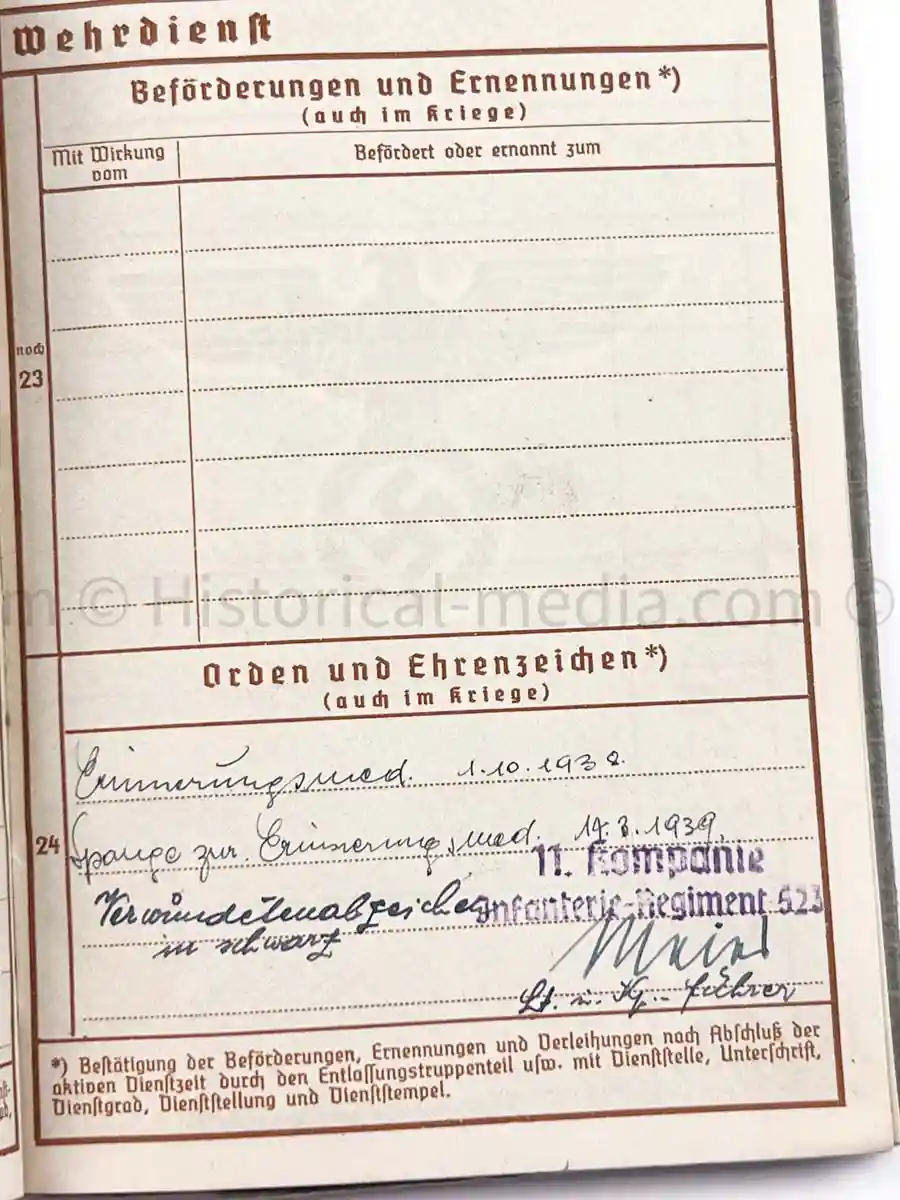 Wehrdienst
Beförderungen und Ernennungen*)
(auch im Kriege)
Mit Wirkung vom
Befördert oder ernannt zum
noch
23
m © Historical-media.com ©
Orden und Ehrenzeichen*)
(auch im Kriege)
24
Erinnerungsmed. 1.10.1938.
Spange zur Erinnerungsmed. 14.3.1939.
11. Kompanie
Verwundetenabzeichen
Infanterie-Regiment 523
in schwarz
Meier
Lt. u. Kp.-Führer
*) Bestätigung der Beförderungen, Ernennungen und Verleihungen nach Abschluß der
aktiven Dienstzeit durch den Entlassungstruppenteil usw. mit Dienststelle, Unterschrift,
Dienstgrad, Dienststellung und Dienststempel.